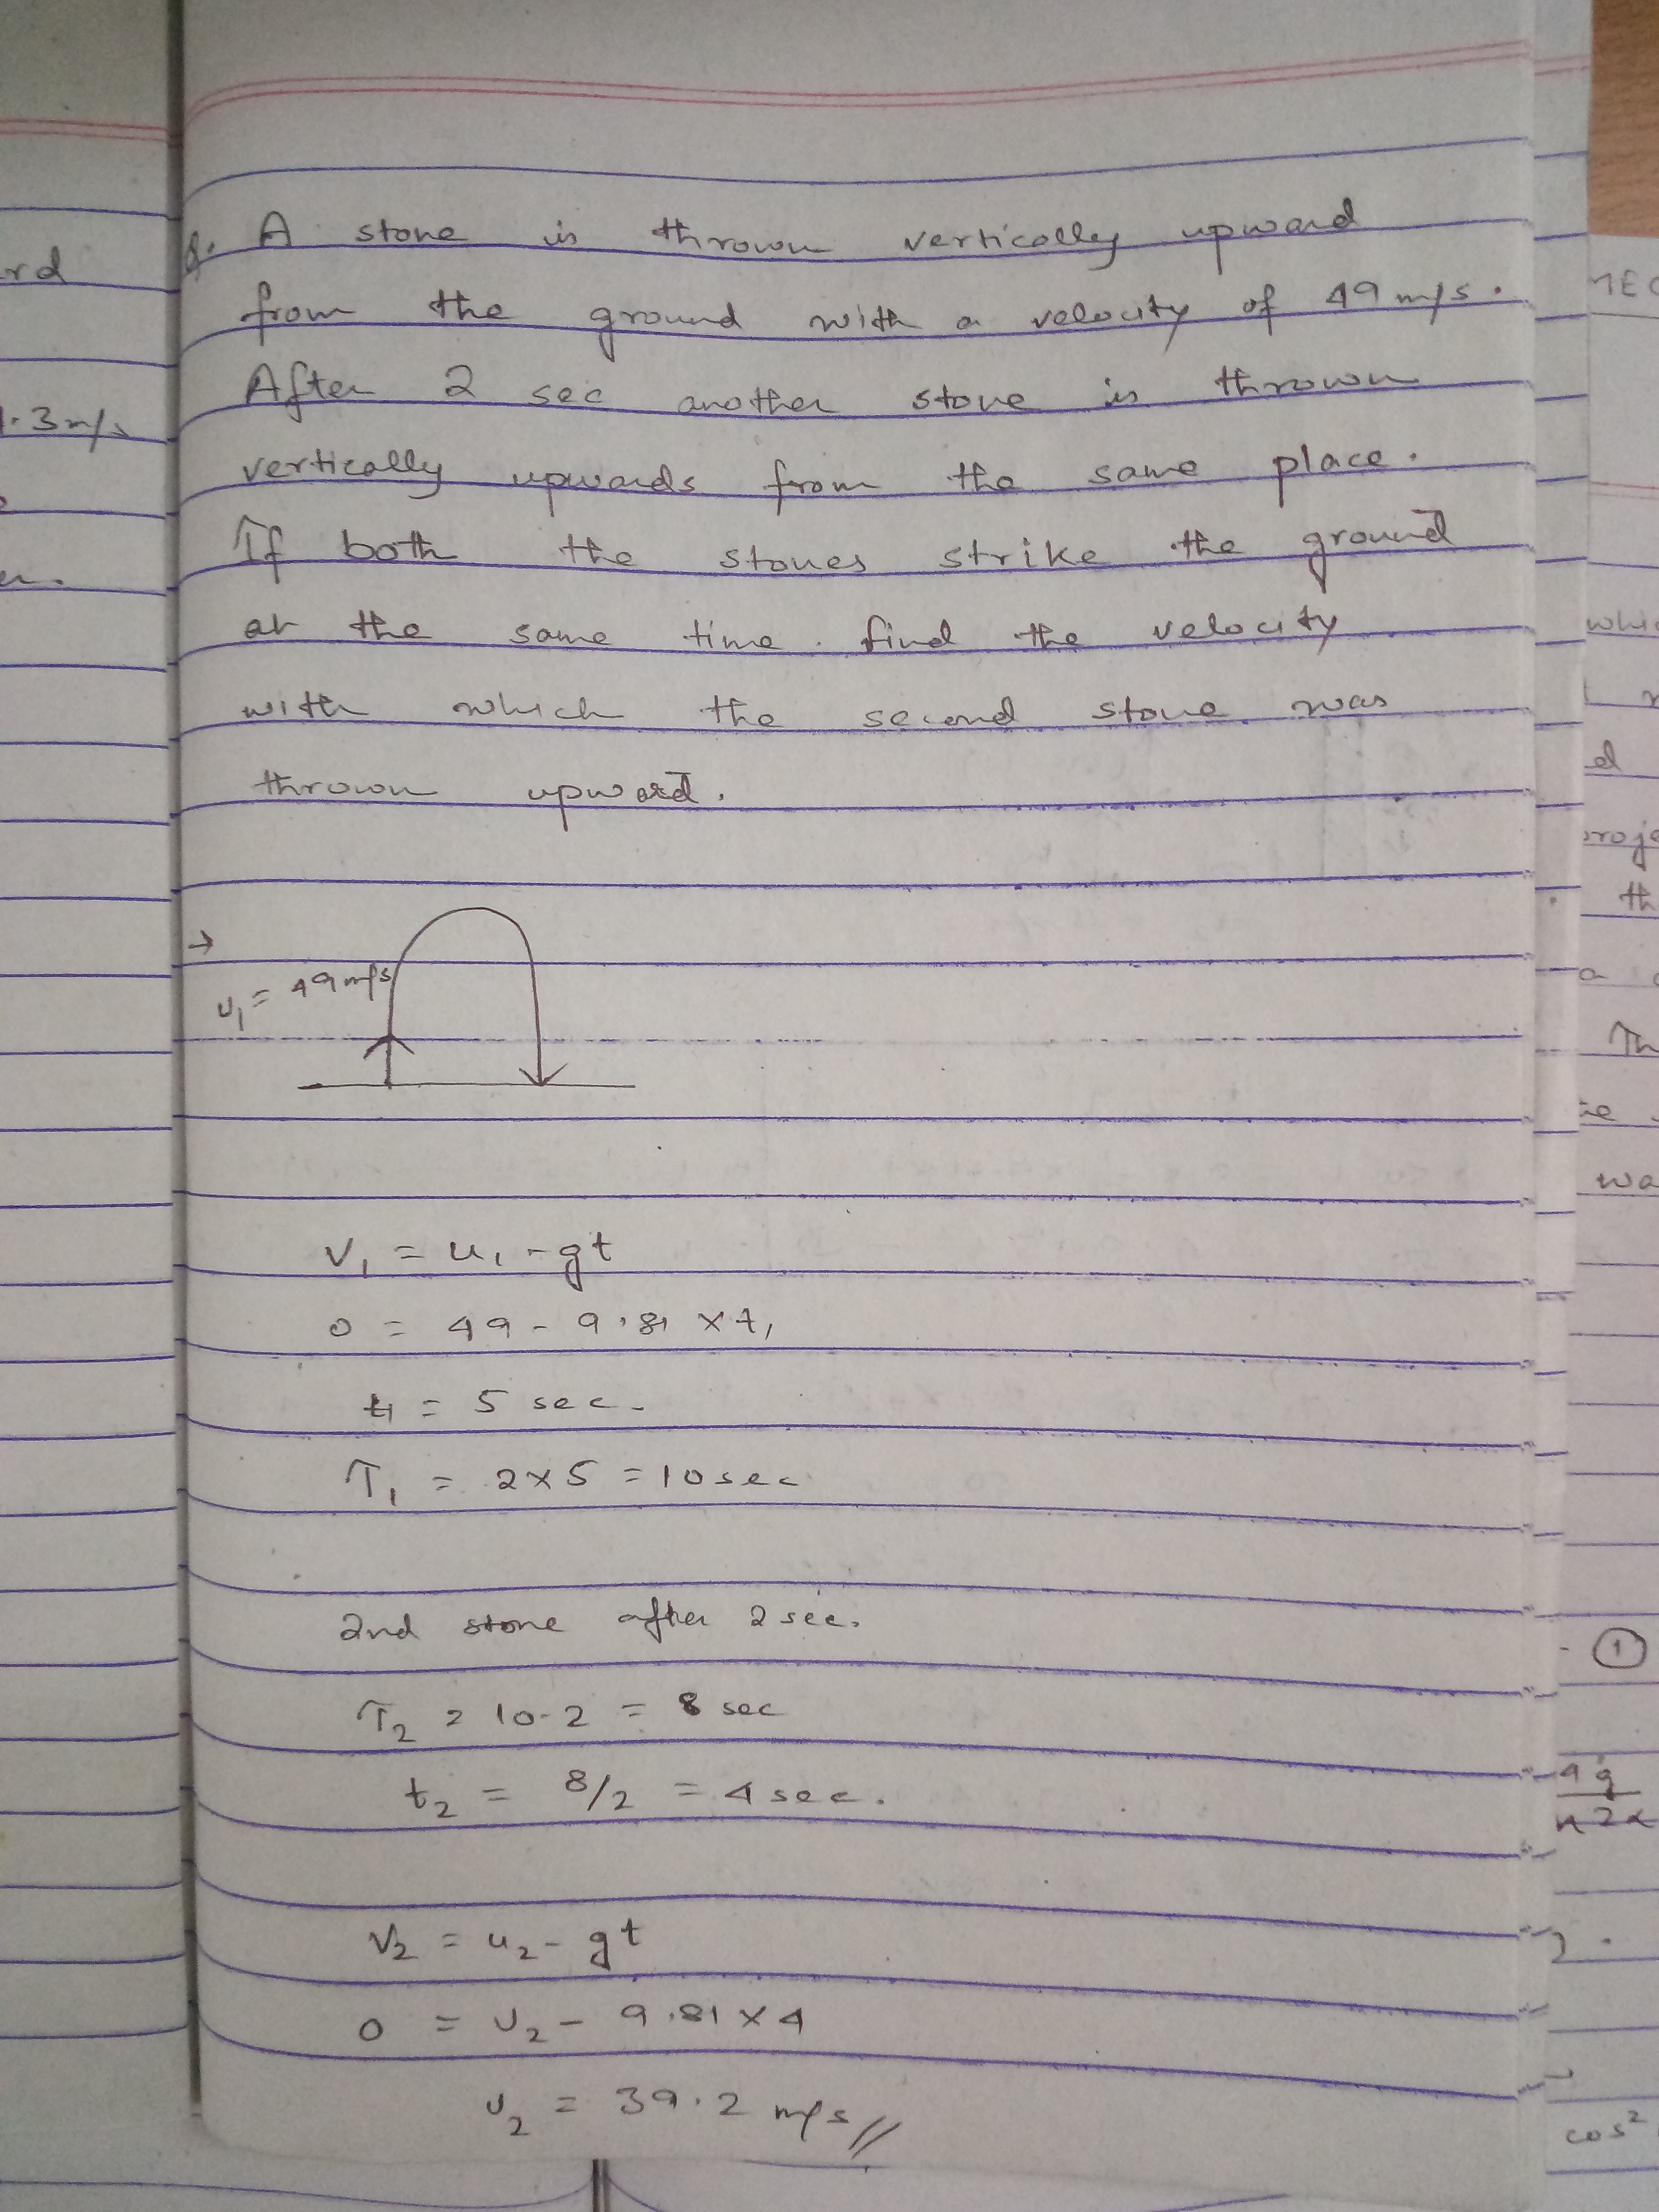 Q. A stone is thrown vertically upward
from the ground with a velocity of 49 m/s.
After 2 sec another stone is thrown
vertically upwards from the same place.
If both the stones strike the ground
at the same time. find the velocity
with which the second stone was
thrown upward.
→
u₁ = 49 m/s
V₁ = u₁ - gt
0 = 49 - 9.81 × t₁
t₁ = 5 sec.
T₁ = 2×5 = 10 sec
2nd stone after 2 sec.
T₂ = 10-2 = 8 sec
t₂ = 8/2 = 4 sec.
V₂ = u₂ - gt
0 = U₂ - 9.81 × 4
U₂ = 39.2 m/s //
rd
.3 m/s
MEC
whic
d
proje
th
a
Th
wa
- ①
cos²